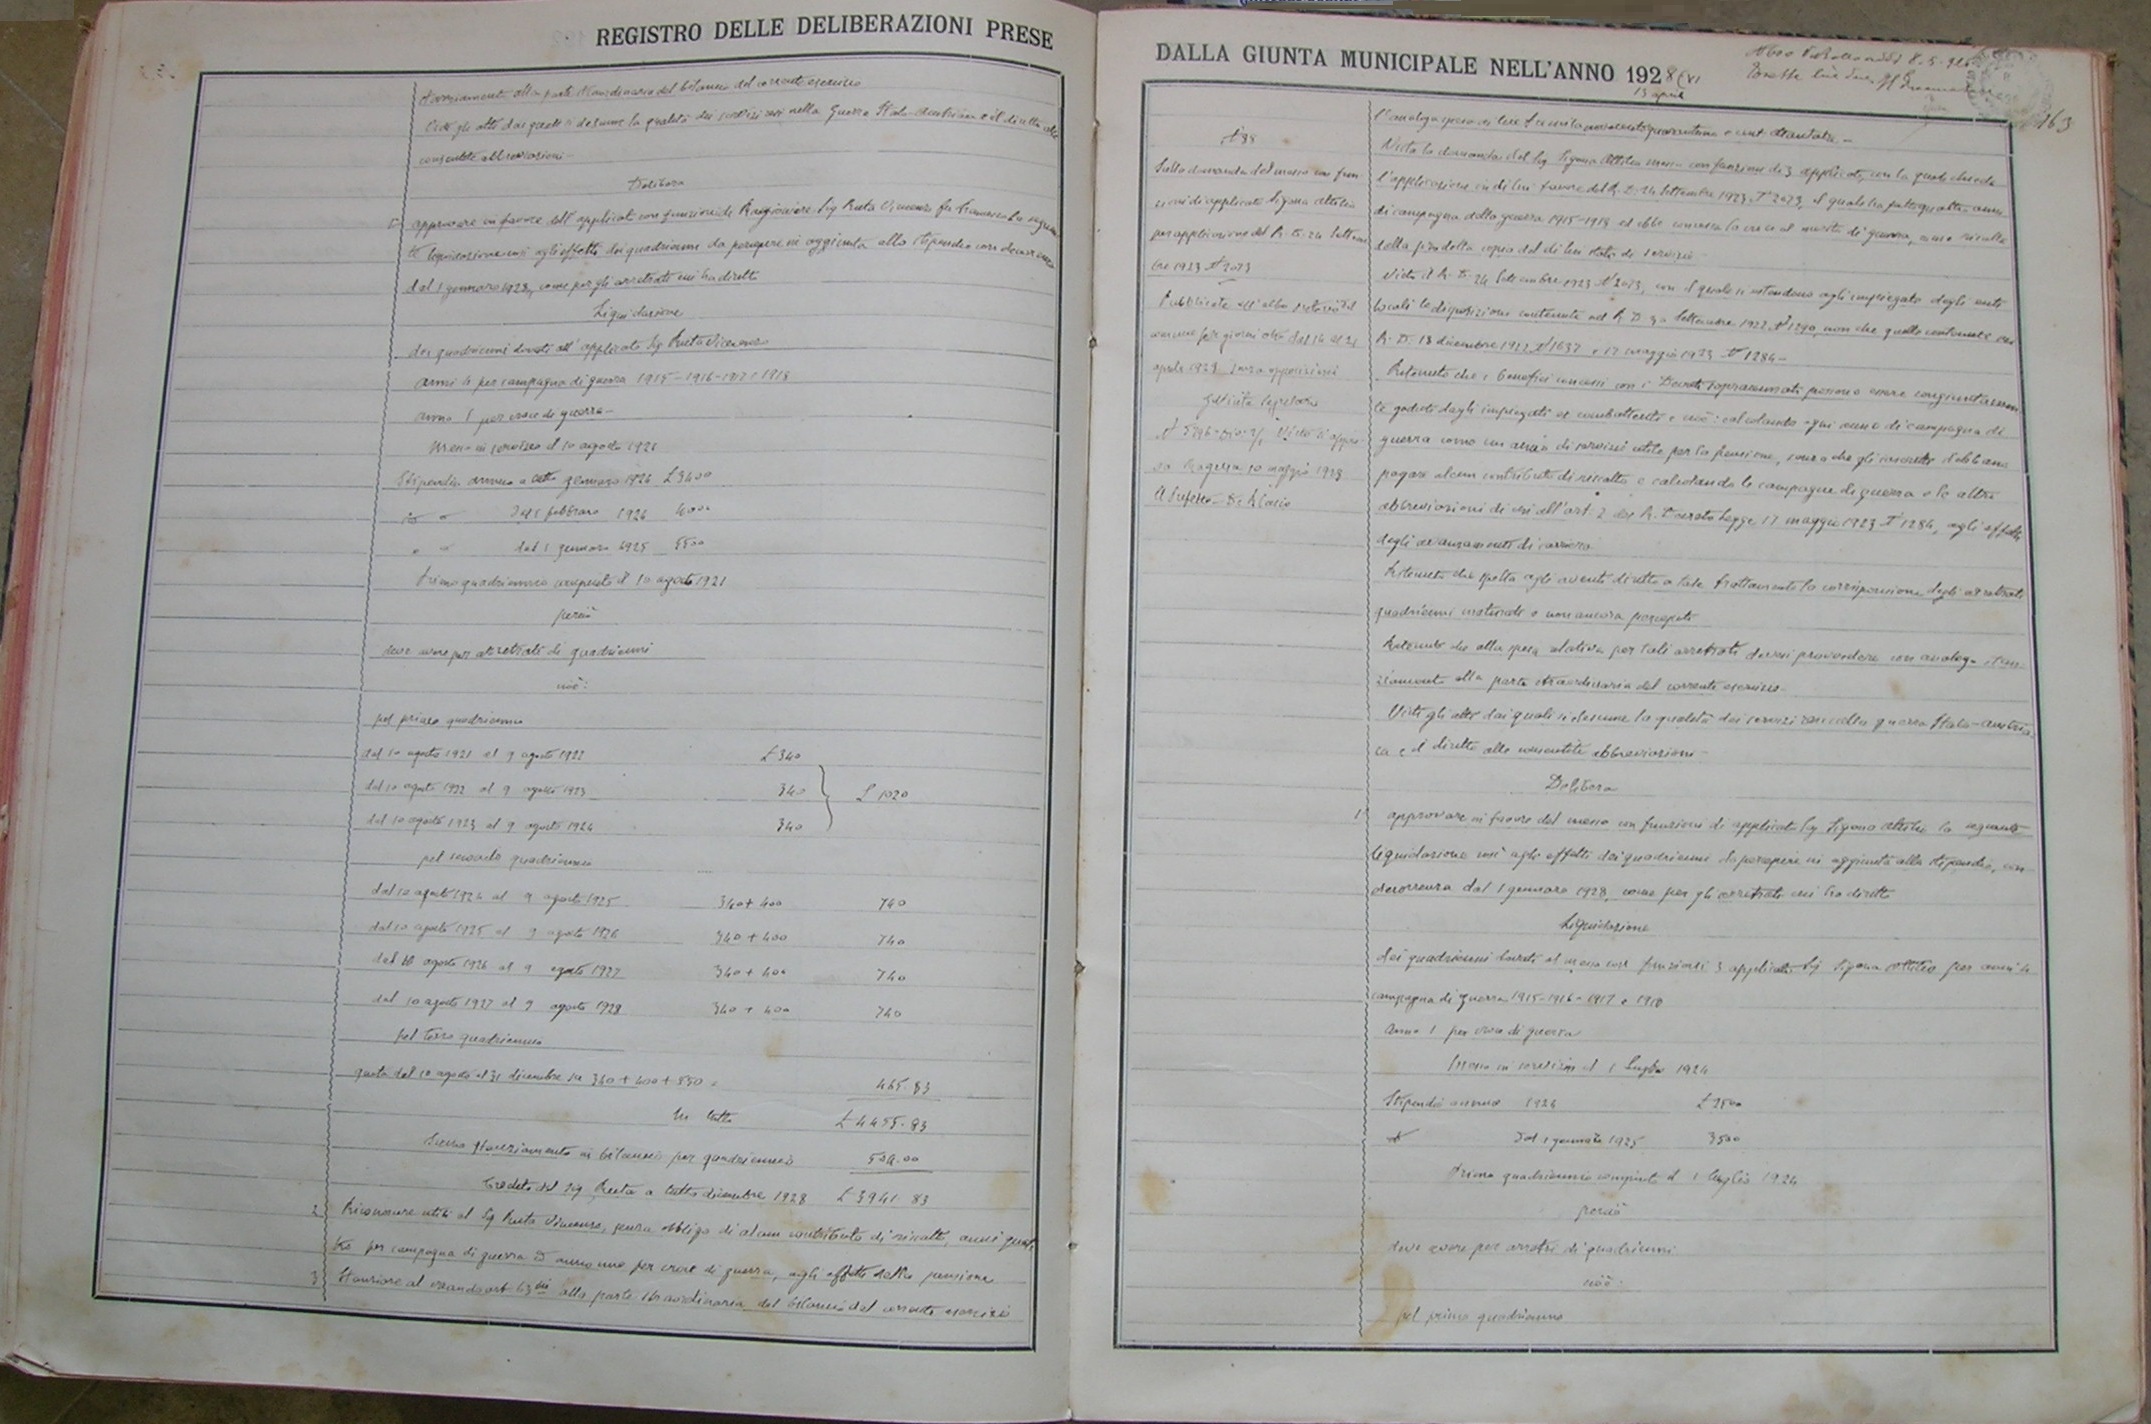 REGISTRO DELLE DELIBERAZIONI PRESE
stanziamento alla parte straordinaria del bilancio del corrente esercizio
Visti gli atti dai quali si desume la qualità dei servizi resi nella Guerra Italo-Austriaca e il diritto alle
consentite abbreviazioni-
Delibera
1° approvare in favore dell'applicato con funzioni di Ragioniere Sig Vincenzo fu Francesco la seguen
te liquidazione così agli effetti dei quadrienni da percepire in aggiunta allo stipendio con decorrenza
dal 1 gennaio 1928, come per gli arretrati cui ha diritto
Liquidazione
dei quadrienni dovuti all'applicato Sig Vincenzo
anni 4 per campagna di guerra 1915-1916-1917 e 1918
anno 1 per croce di guerra-
in servizio il 10 agosto 1921
Stipendio annuo a tutto gennaio 1924 £ 3400
dal 1 febbraio 1924 4000
" " dal 1 gennaio 1925 5500
Primo quadriennio compiuto il 10 agosto 1921
perciò
deve avere per arretrati di quadrienni
cioè:
pel primo quadriennio
dal 10 agosto 1921 al 9 agosto 1922 £ 340
dal 10 agosto 1922 al 9 agosto 1923 340 £ 1020
dal 10 agosto 1923 al 9 agosto 1924 340
pel secondo quadriennio
dal 10 agosto 1924 al 9 agosto 1925 340 + 400 740
dal 10 agosto 1925 al 9 agosto 1926 340 + 400 740
dal 10 agosto 1926 al 9 agosto 1927 340 + 400 740
dal 10 agosto 1927 al 9 agosto 1928 340 + 400 740
pel terzo quadriennio
quota dal 10 agosto al 31 dicembre 340 + 400 + 550 = 465.83
In tutto £ 4455.83
stanziamento in bilancio per quadriennio 504.00
Credito del Sig a tutto dicembre 1928 £ 3941 83
2 Riconoscere utili al Sig Vincenzo, senza obbligo di alcun contributo di riscatto, anni quat
tro per campagna di guerra ed anno uno per croce di guerra, agli effetti della pensione
3 Stanziare al art 63 bis alla parte straordinaria del bilancio del corrente esercizio
DALLA GIUNTA MUNICIPALE NELL'ANNO 1928 (VI
13 aprile
163
N° 98
Sulla domanda del messo con fun
zioni di applicato Sigona Attilio
per applicazione del R. D. 24 Settem
bre 1923 N° 2073
Pubblicata all'albo pretorio del
comune per giorni otto dal 14 al 21
aprile 1928 senza opposizioni
Visto si appro
va Ragusa 10 maggio 1928
Il Prefetto
l'analoga spesa di lire tremila novecentoquarantuno e cent ottantatre -
Vista la domanda del Sig. Sigona Attilio messo con funzioni di applicato, con la quale chiede
l'applicazione in di lui favore del R. D. 24 Settembre 1923 N° 2073, il quale ha fatto quattro anni
di campagna della guerra 1915-1918 ed ebbe concessa la croce al merito di guerra, come risulta
della copia del di lui stato di servizio
Visto il R. D. 24 Settembre 1923 N° 2073, con il quale si estendono agli impiegati degli enti
locali le disposizioni contenute nel R. D. 30 Settembre 1922 N° 1290, non che quelle contenute nei
R. D. 18 dicembre 1922 N° 1637 e 17 maggio 1923 N° 1284-
Ritenuto che i benefici concessi con i Decreti sopracennati possono essere congiuntamen
te goduti dagli impiegati ex combattenti e cioè: calcolando ogni anno di campagna di
guerra come un anno di servizio utile per la pensione, senza che gli interessati debbano
pagare alcun contributo di riscatto e calcolando le campagne di guerra e le altre
abbreviazioni di cui all'art. 2 del R. Decreto Legge 17 maggio 1923 N° 1284, agli effetti
degli avanzamenti di carriera
Ritenuto che spetta agli aventi diritto a tale trattamento la corrisponsione degli arretrati
quadrienni maturati e non ancora percepiti
Ritenuto che alla spesa relativa per tali arretrati devesi provvedere con analogo stan
ziamento alla parte straordinaria del corrente esercizio-
Visti gli atti dai quali si desume la qualità dei servizi resi nella guerra Italo-austria
ca e il diritto alle consentite abbreviazioni-
Delibera
1° approvare in favore del messo con funzioni di applicato Sig Sigona Attilio la seguente
liquidazione così agli effetti dei quadrienni da percepire in aggiunta allo stipendio, con
decorrenza dal 1 gennaio 1928, come per gli arretrati cui ha diritto
Liquidazione
dei quadrienni dovuti al messo con funzioni di applicato Sig Sigona Attilio per anni 4
campagna di guerra 1915-1916-1917 e 1918
anno 1 per croce di guerra
in servizio il 1 Luglio 1924
Stipendio annuo 1924 £ 2500
dal 1 gennaio 1925 3500
Primo quadriennio compiuto il 1 luglio 1924
perciò
deve avere per arretrati di quadrienni
cioè:
pel primo quadriennio